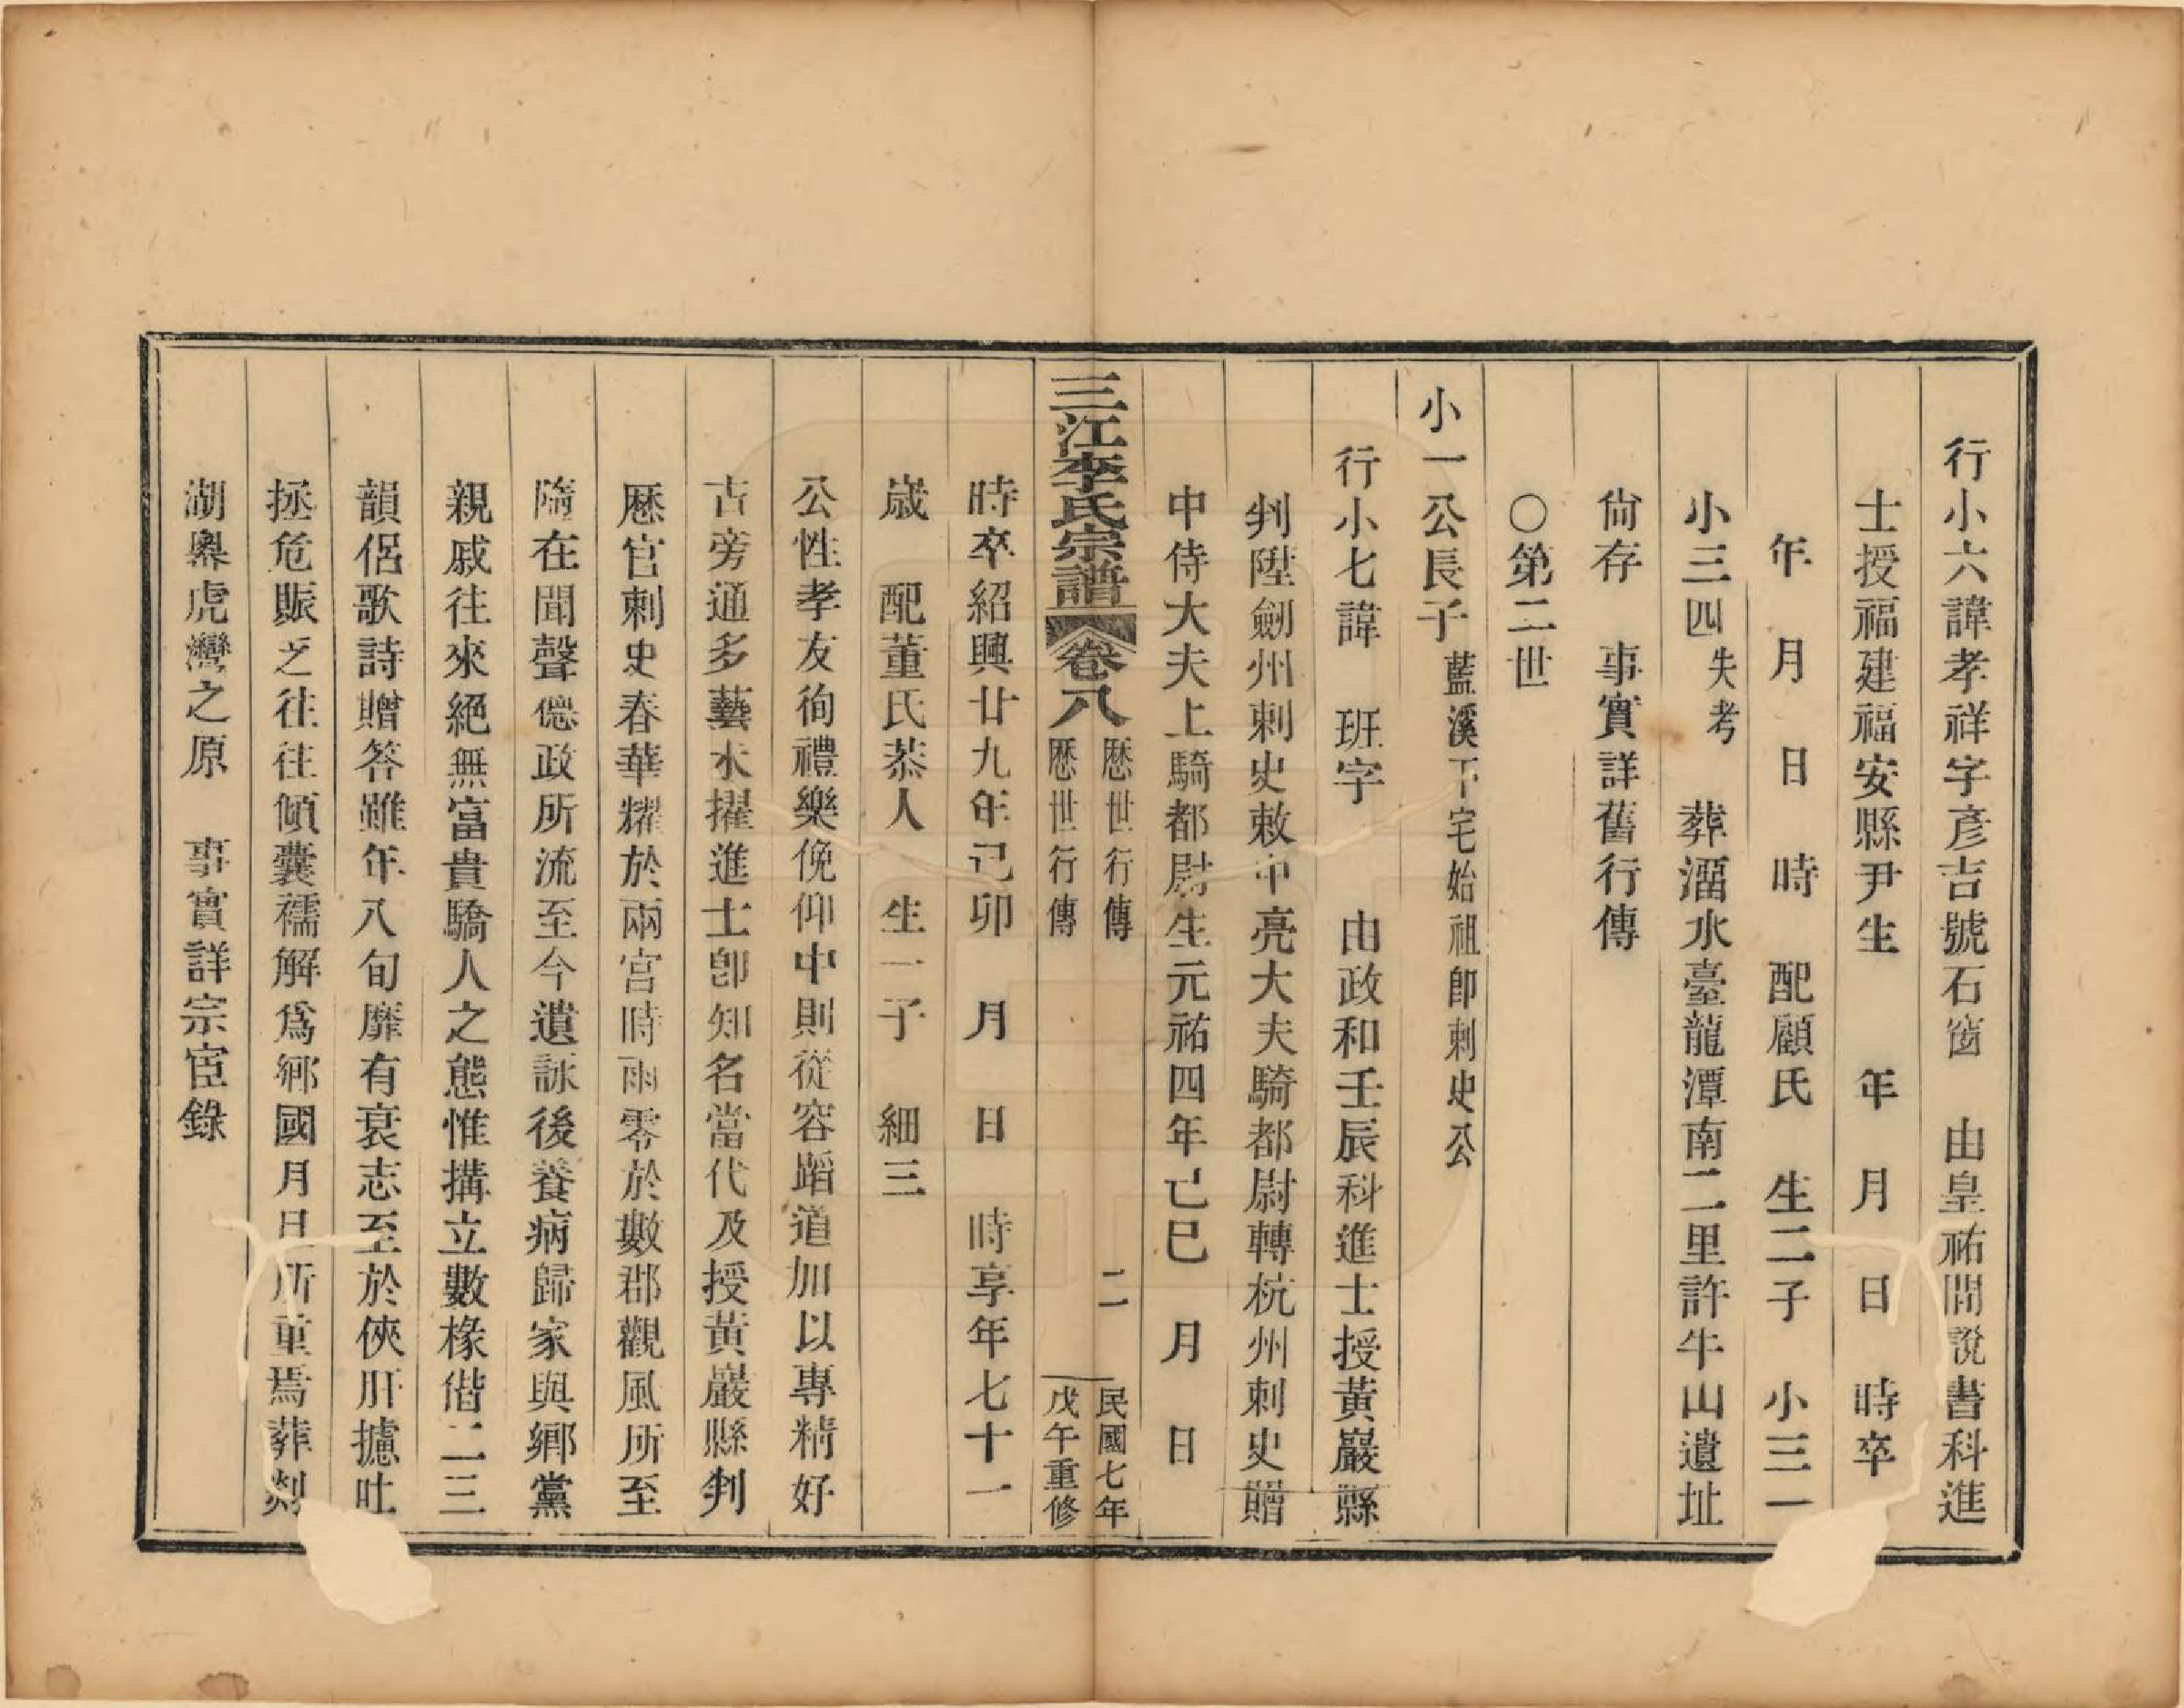 行小六諱孝祥字彥吉號石窗　由皇祐間說書科進
士授福建福安縣尹生　　年　月　日　時卒
年　月　日　時　配顧氏　生二子　小三一
小三四失考　葬溜水臺龍潭南二里許牛山遺址
尙存　事實詳舊行傳
〇第二世
小一公長子藍溪下宅始祖卽刺史公
行小七諱　班字　　由政和壬辰科進士授黃巖縣
判陞劍州刺史敕中亮大夫騎都尉轉杭州刺史贈
中侍大夫上騎都尉生元祐四年己巳　月　日
三江李氏宗譜　卷八　歷世行傳　歷世行傳　二　民國七年戊午重修
時卒紹興廿九年己卯　月　日　時享年七十一
歲　配董氏恭人　生一子　細三
公性孝友徇禮樂俛仰中則從容蹈道加以專精好
古旁通多藝未擢進士卽知名當代及授黃巖縣判
歷官刺史春華耀於兩宮時雨零於數郡觀風所至
隨在聞聲德政所流至今遺詠後養病歸家與鄉黨
親戚往來絕無富貴驕人之態惟搆立數椽偕二三
韻侶歌詩贈答雖年八旬靡有衰志至於俠肝攄吐
拯危賑乏往往傾囊襦解爲鄉國月旦所重焉葬剡
湖奧虎灣之原　事實詳宗宦錄